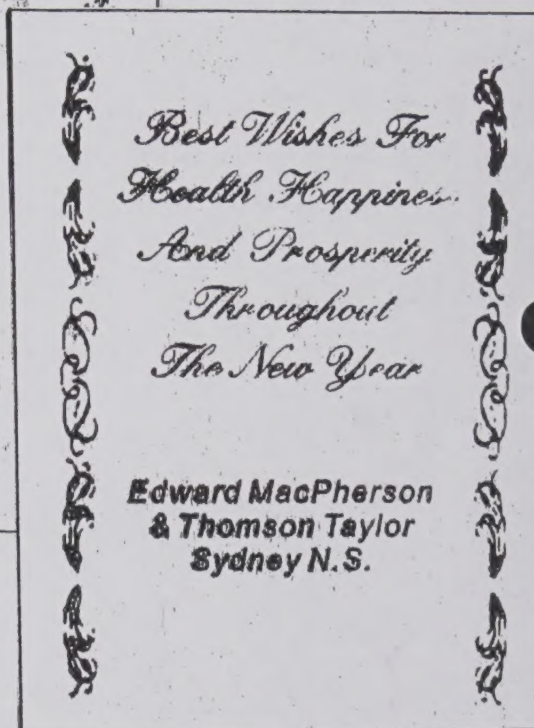 Best Wishes For
Health Happines
And Prosperity
Throughout
The New Year
Edward MacPherson
& Thomson Taylor
Sydney N.S.